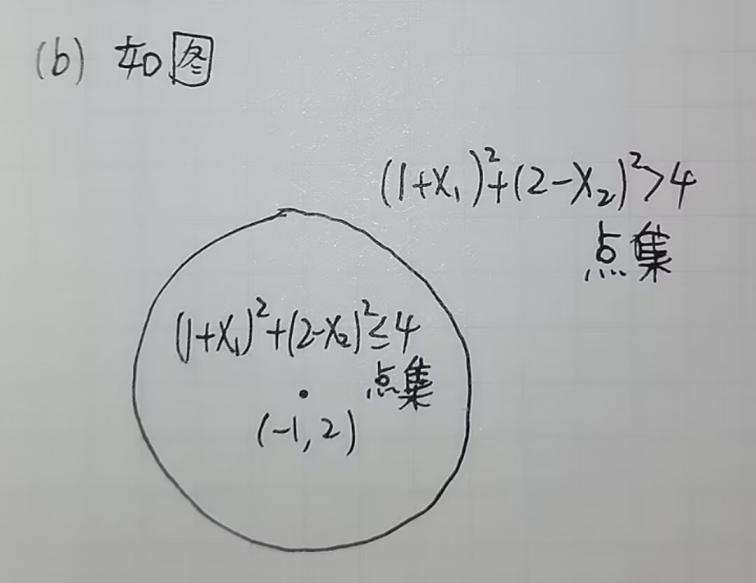 (b) 如图
(1+X₁)²+(2-X₂)²>4
点集
(1+X₁)²+(2-X₂)²≤4
点集
(-1,2)